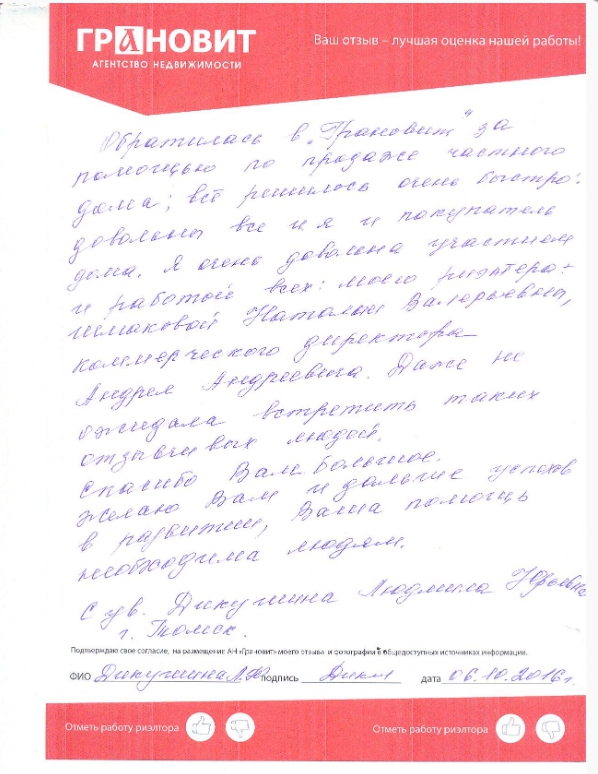 ГРАНОВИТ
АГЕНТСТВО НЕДВИЖИМОСТИ
Ваш отзыв – лучшая оценка нашей работы!
Обратилась в „Грановит" за
помощью по продаже частного
дома; всё решилось очень быстро:
довольны все и я и покупатель
дома. Я очень довольна участием
и работой всех: моего риэлтера-
Шмаковой Натальи Валерьевны,
коммерческого директора
Андрея Андреевича. Даже не
ожидала встретить таких
отзывчивых людей.
Спасибо Вам большое.
Желаю Вам и дальше успехов
в развитии, Ваша помощь
необходима людям.
С ув. Дикушина Людмила Юрьевна
г. Томск.
Подтверждаю свое согласие, на размещение АН «Грановит» моего отзыва и фотографии в общедоступных источниках информации.
ФИО Дикушина Л.Ю. подпись Дику дата 06.10.2016г.
Отметь работу риэлтора Отметь работу риэлтора